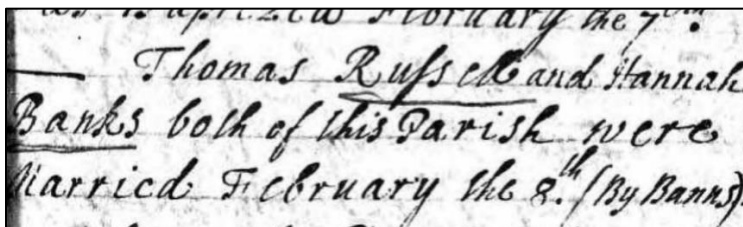 was Baptized February the 7th.
— Thomas Ruſsell and Hannah
Banks both of this Parish were
Married February the 8.th (By Banns).